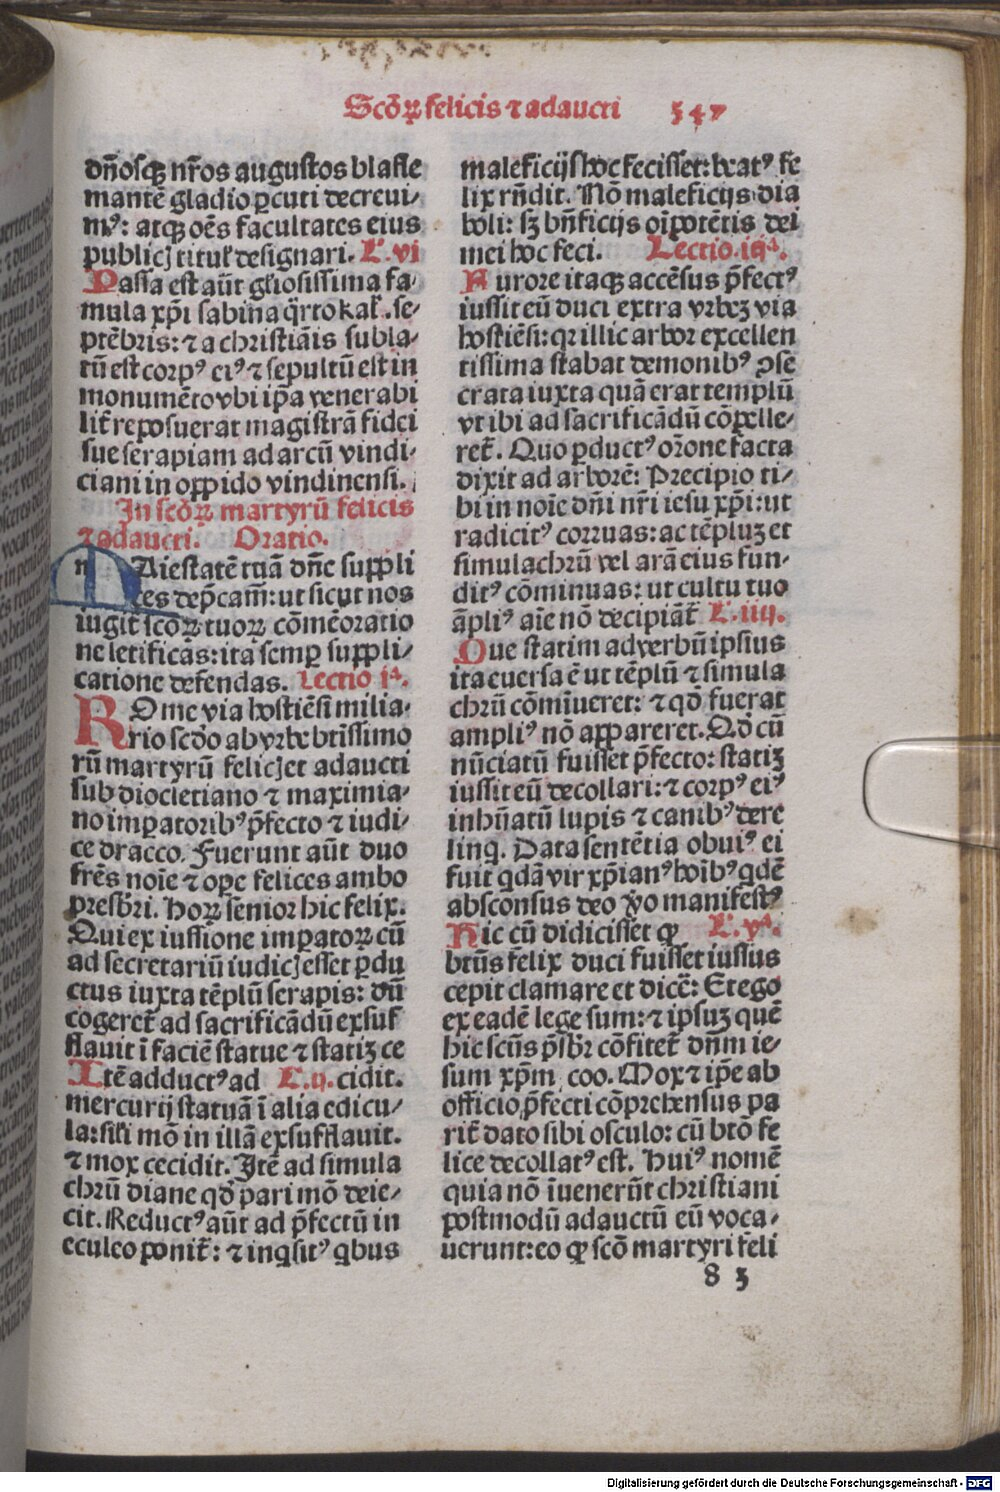 Scõꝝ felicis ⁊ adaucti 547
dñosqꝫ nr̃os augustos blasfe
mantẽ gladio ꝑcuti decreui⸗
mꝰ: atqꝫ oẽs facultates eius
publicj titul' designari. L'. vi
Passa est aũt gl'iosissima fa⸗
mula xp̃i sabina q̈rto kal'. se⸗
ptẽbris: ⁊ a christiãis subla⸗
tũ est corpꝰ eiꝰ ⁊ sepultũ est in
monumẽto vbi ip̃a venerabi
lit̃ reposuerat magistrã fidei
sue serapiam ad arcũ vindi⸗
ciani in oppido vindinensi.
In scõꝝ martyrũ felicis
⁊ adaucti. Oratio.
MAiestatẽ tuã dñe suppli
ces dep̃cam̃: ut sicut nos
iugit̃ scõꝝ tuoꝝ cõmẽoratio
ne letificas: ita semꝑ suppli⸗
catione defendas. Lectio jª.
ROme via hostiẽsi milia⸗
rio scd̃o ab vrbe btissimo
rũ martyrũ felicj et adaucti
sub diocletiano ⁊ maximia⸗
no imꝑatoribꝰ p̃fecto ⁊ iudi⸗
ce dracco. Fuerunt aũt duo
frẽs noĩe ⁊ ope felices ambo
presbr̃i. Hoꝝ senior hic felix.
Qui ex iussione imꝑatoꝝ cũ
ad secretariũ iudicj esset ꝑdu
ctus iuxta tẽplũ serapis: dũ
cogeret̃ ad sacrificãdũ exsuf
flauit ĩ faciẽ statue ⁊ statiʒ ce
Itẽ adductꝰ ad L'. ij. cidit.
mercurij statuã ĩ alia edicu⸗
la: sil'i mõ in illã exsufflauit.
⁊ mox cecidit. Itẽ ad simula
chrũ diane qd̃ pari mõ deie⸗
cit. Reductꝰ aũt ad p̃fectũ in
eculeo ponit̃: ⁊ inq̇sitꝰ q̇bus
maleficijs hoc fecisset: beatꝰ fe
lix rñdit. Nõ maleficijs dia
boli: sʒ bñficijs oĩpotẽtis dei
mei hoc feci. Lectio. iijª.
Furore itaqꝫ accẽsus p̃fectꝰ
iussit eũ duci extra vrbeʒ via
hostiẽsi: qr illic arbor excellen
tissima stabat demonibꝰ ꝯse
crata iuxta quã erat templũ
vt ibi ad sacrificãdũ cõpelle⸗
ret̃. Quo ꝑductꝰ or̃one facta
dixit ad arborẽ: Precipio ti⸗
bi in noĩe dñi nr̃i iesu xp̃i: ut
radicitꝰ corruas: ac tẽpluʒ et
simulachrũ vel arã eius fun⸗
ditꝰ cõminuas: ut cultu tuo
ãpliꝰ aĩe nõ decipiãt̃ L'. iiij.
Que statim ad verbũ ipsius
ita euersa ẽ ut tẽplũ ⁊ simula
chrũ cõmĩueret: ⁊ qd̃ fuerat
ampliꝰ nõ appareret. Qd̃ cũ
nũciatũ fuisset p̃fecto: statiʒ
iussit eũ decollari: ⁊ corpꝰ eiꝰ
inhũatũ lupis ⁊ canibꝰ dere
linq̇. Data sentẽtia obuiꝰ ei
fuit q̇dã vir xp̃ianꝰ hoĩbꝰ q̇dẽ
absconsus deo v̊o manifestꝰ
Hic cũ didicisset ꝙ L'. vª.
btũs felix duci fuisset iussus
cepit clamare et dicẽ: Et ego
ex eadẽ lege sum: ⁊ ipsuʒ quẽ
hic scũs p̃sbr̃ cõfitet̃ dñm ie⸗
sum xp̃m coo. Mox ⁊ ip̃e ab
officio p̃fecti cõprehensus pa
rit̃ dato sibi osculo: cũ btõ fe
lice decollatꝰ est. Huiꝰ nomẽ
quia nõ ĩuener̃ut christiani
postmodũ adauctũ eũ voca⸗
uerunt: eo ꝙ scõ martyri feli
8 3
Digitalisierung gefördert durch die Deutsche Forschungsgemeinschaft - DFG